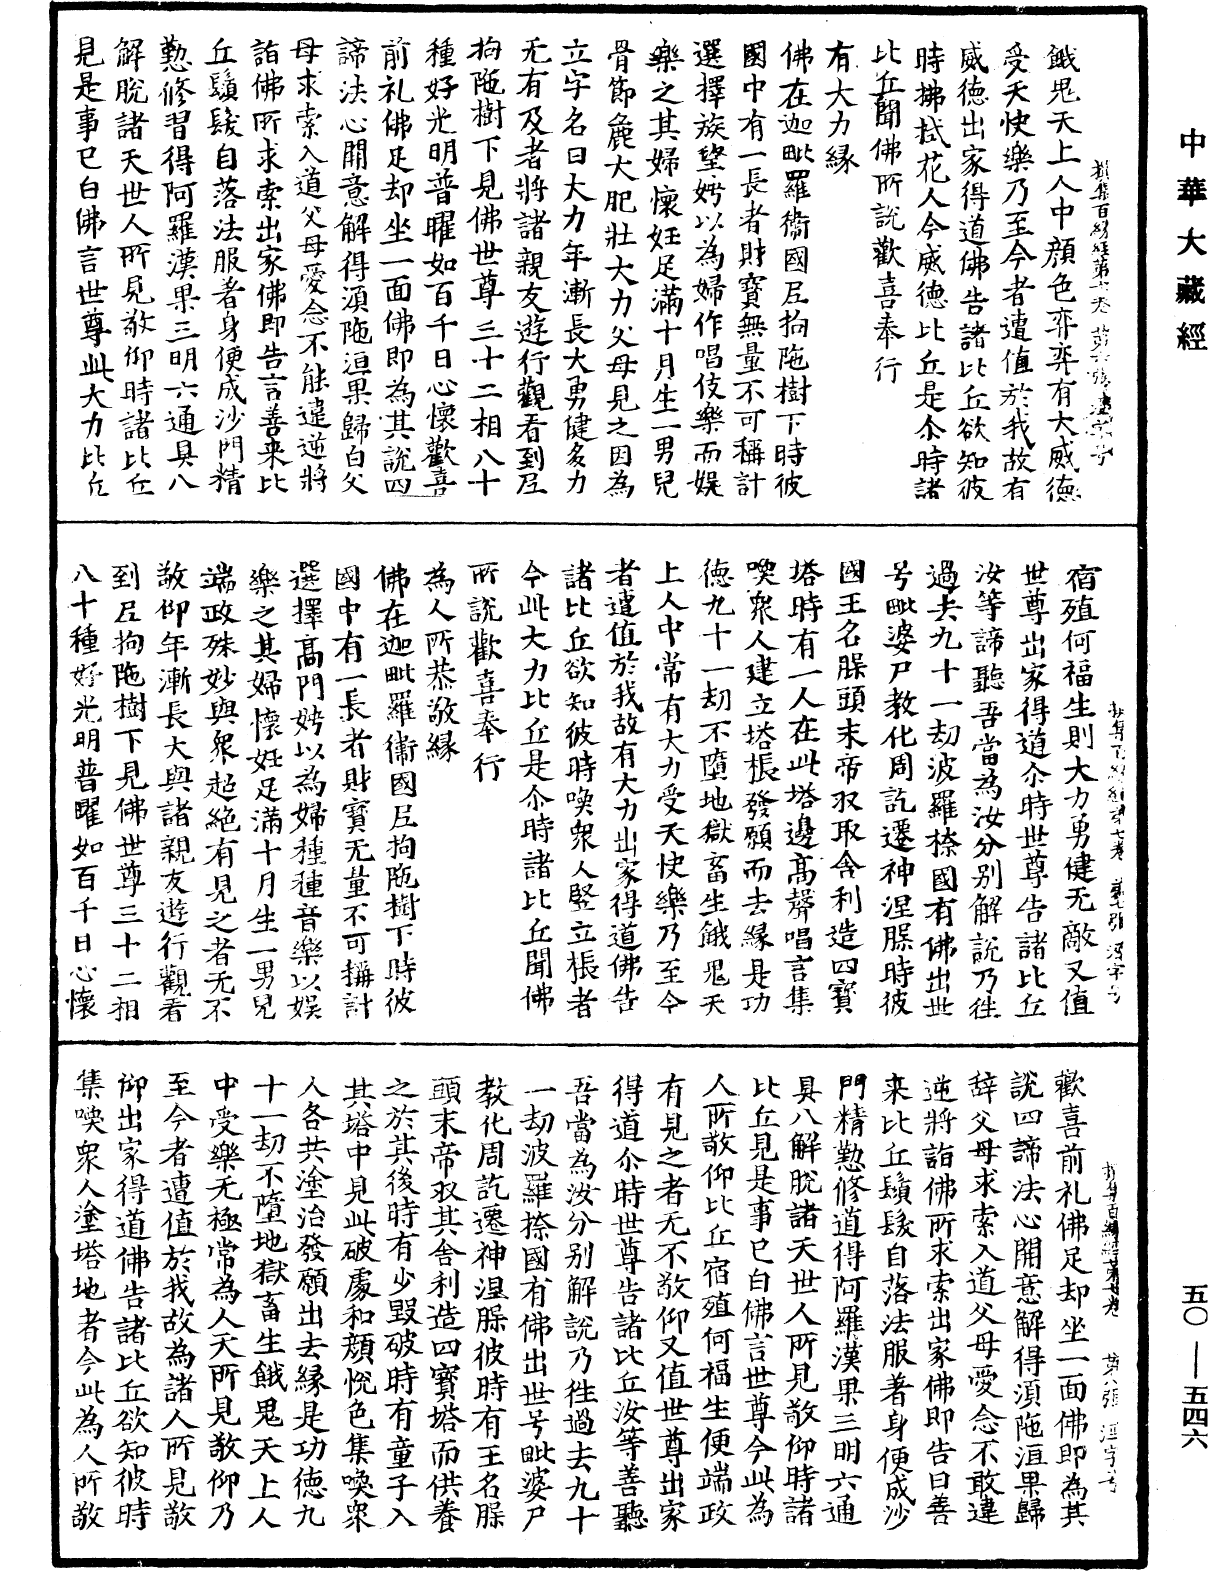 中華大藏經
餓鬼天上人中顏色弈弈有大威德
受天快樂乃至今者遭值於我故有
威德出家得道佛告諸比丘欲知彼
時拂拭花人今威德比丘是尒時諸
比丘聞佛所說歡喜奉行
有大力緣
佛在迦毗羅衛國尼拘陁樹下時彼
國中有一長者財寶無量不可稱計
選擇族望娉以為婦作唱伎樂而娛
樂之其婦懷妊足滿十月生一男兒
骨節麁大肥壯大力父母見之因為
立字名曰大力年漸長大勇健多力
无有及者將諸親友遊行觀看到尼
拘陁樹下見佛世尊三十二相八十
種好光明普曜如百千日心懷歡喜
前礼佛足却坐一面佛即為其說四
諦法心開意解得湏陁洹果歸白父
母求索入道父母愛念不能違逆將
詣佛所求索出家佛即告言善来比
丘鬚髮自落法服著身便成沙門精
懃修習得阿羅漢果三明六通具八
解脫諸天世人所見敬仰時諸比丘
見是事已白佛言世尊此大力比丘
宿殖何福生則大力勇健无敵又值
世尊出家得道尒時世尊告諸比丘
汝等諦聽吾當為汝分別解說乃徃
過去九十一劫波羅㮈國有佛出世
号毗婆尸教化周訖遷神涅槃時彼
國王名槃頭末帝収取舎利造四寶
塔時有一人在此塔邊高聲唱言集
喚衆人建立塔棖發願而去緣是功
德九十一劫不墮地獄畜生餓鬼天
上人中常有大力受天快樂乃至今
者遭值於我故有大力出家得道佛告
諸比丘欲知彼時喚衆人竪立棖者
今此大力比丘是尒時諸比丘聞佛
所說歡喜奉行
為人所恭敬緣
佛在迦毗羅衛國尼拘陁樹下時彼
國中有一長者財寶无量不可稱計
選擇高門娉以為婦種種音樂以娛
樂之其婦懷妊足滿十月生一男兒
端政殊妙與衆超絕有見之者无不
敬仰年漸長大與諸親友遊行觀看
到尼拘陁樹下見佛世尊三十二相
八十種好光明普曜如百千日心懷
歡喜前礼佛足却坐一面佛即為其
說四諦法心開意解得湏陁洹果歸
辞父母求索入道父母愛念不敢違
逆將詣佛所求索出家佛即告曰善
来比丘鬚髮自落法服著身便成沙
門精懃修道得阿羅漢果三明六通
具八解脫諸天世人所見敬仰時諸
比丘見是事已白佛言世尊今此為
人所敬仰比丘宿殖何福生便端政
有見之者无不敬仰又值世尊出家
得道尒時世尊告諸比丘汝等善聽
吾當為汝分別解說乃徃過去九十
一劫波羅㮈國有佛出世号毗婆尸
教化周訖遷神涅槃彼時有王名槃
頭末帝収其舎利造四寶塔而供養
之於其後時有少毀破時有童子入
其塔中見此破處和顏悅色集喚衆
人各共塗治發願出去緣是功德九
十一劫不墮地獄畜生餓鬼天上人
中受樂无極常為人天所見敬仰乃
至今者遭值於我故為諸人所見敬
仰出家得道佛告諸比丘欲知彼時
集喚衆人塗塔地者今此為人所敬
五〇——五四六